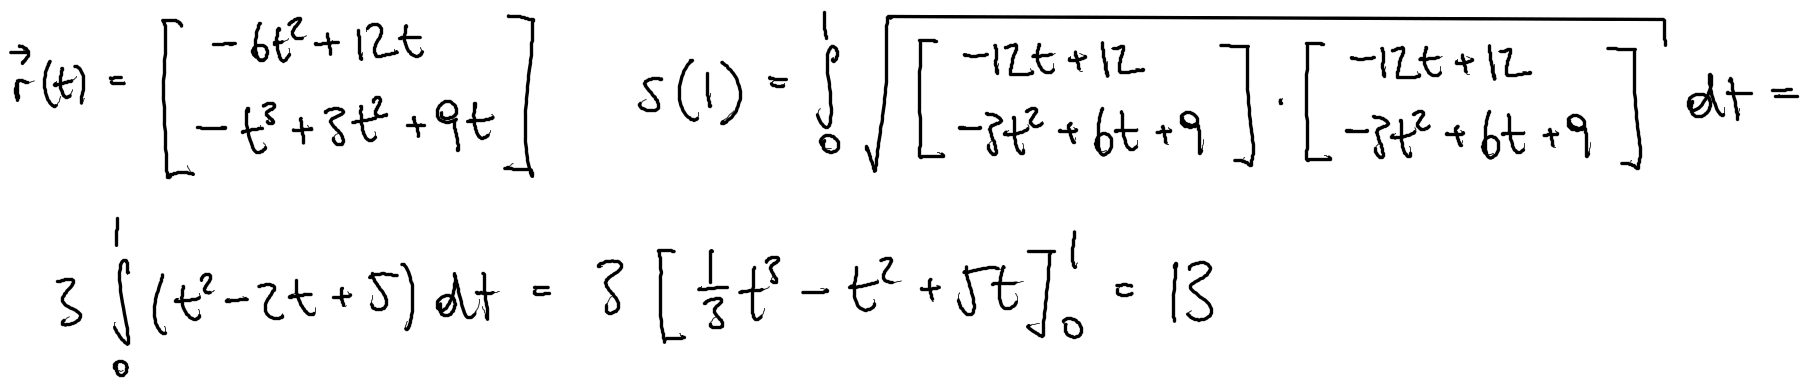 $\vec{r}(t) = \begin{bmatrix} -6t^2 + 12t \\ -t^3 + 3t^2 + 9t \end{bmatrix} \quad s(1) = \int_0^1 \sqrt{\begin{bmatrix} -12t + 12 \\ -3t^2 + 6t + 9 \end{bmatrix} \cdot \begin{bmatrix} -12t + 12 \\ -3t^2 + 6t + 9 \end{bmatrix}} \, dt =$
$3 \int_0^1 (t^2 - 2t + 5) \, dt = 3 \left[ \frac{1}{3} t^3 - t^2 + 5t \right]_0^1 = 13$